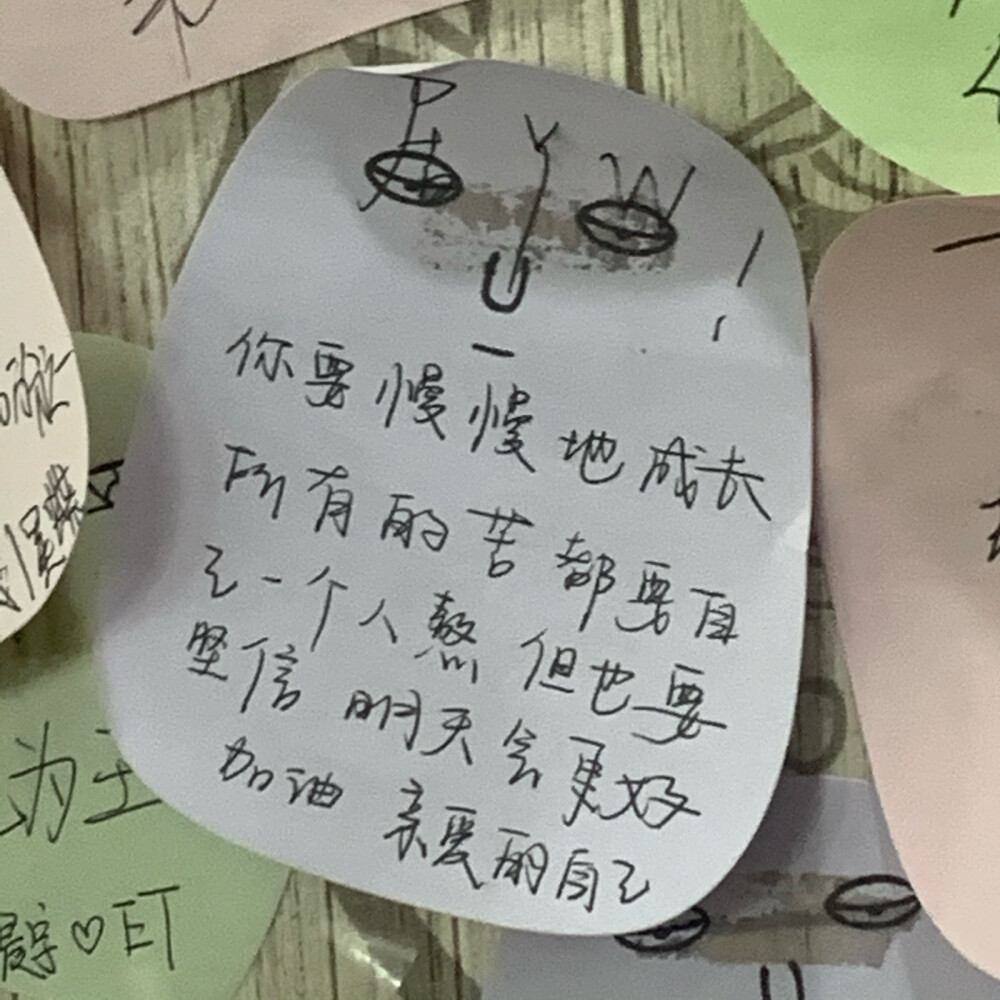 你要慢慢地成长
所有的苦都要自
己一个人熬 但也要
坚信 明天会更好
加油 亲爱的自己
为主
♡ET